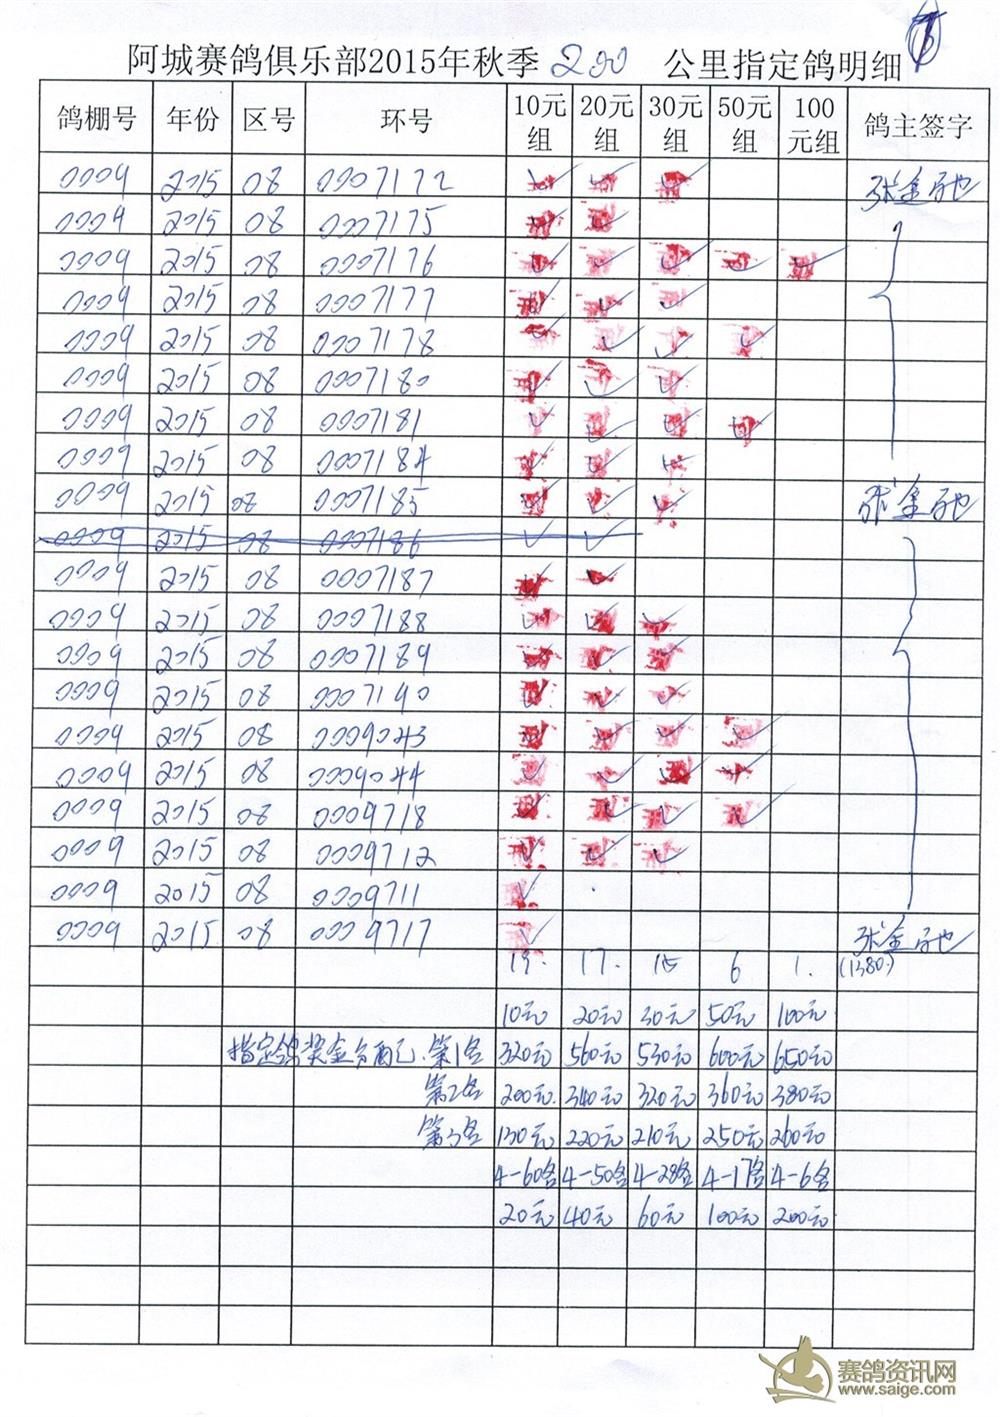 阿城赛鸽俱乐部2015年秋季 200 公里指定鸽明细
鸽棚号 年份 区号 环号 10元组 20元组 30元组 50元组 100元组 鸽主签字
0009 2015 08 0007172 ✓ ✓ ✓
0009 2015 08 0007175 ✓ ✓
0009 2015 08 0007176 ✓ ✓ ✓ ✓ ✓
0009 2015 08 0007177 ✓ ✓ ✓
0009 2015 08 0007178 ✓ ✓ ✓ ✓
0009 2015 08 0007180 ✓ ✓ ✓
0009 2015 08 0007181 ✓ ✓ ✓ ✓
0009 2015 08 0007184 ✓ ✓ ✓
0009 2015 08 0007185 ✓ ✓ ✓
0009 2015 08 0007186 ✓ ✓
0009 2015 08 0007187 ✓ ✓
0009 2015 08 0007188 ✓ ✓ ✓
0009 2015 08 0007189 ✓ ✓ ✓
0009 2015 08 0007190 ✓ ✓ ✓
0009 2015 08 0009043 ✓ ✓ ✓ ✓
0009 2015 08 0009044 ✓ ✓ ✓ ✓
0009 2015 08 0009718 ✓ ✓ ✓ ✓
0009 2015 08 0009712 ✓ ✓ ✓
0009 2015 08 0009711 ✓
0009 2015 08 0009717 ✓
19. 17. 15 6 1. (1380)
10元 20元 30元 50元 100元
指定鸽奖金分配:第1名 320元 560元 530元 600元 650元
第2名 200元 340元 320元 360元 380元
第3名 130元 220元 210元 250元 260元
4-60名 4-50名 4-28名 4-17名 4-6名
20元 40元 60元 100元 200元
赛鸽资讯网
www.saige.com